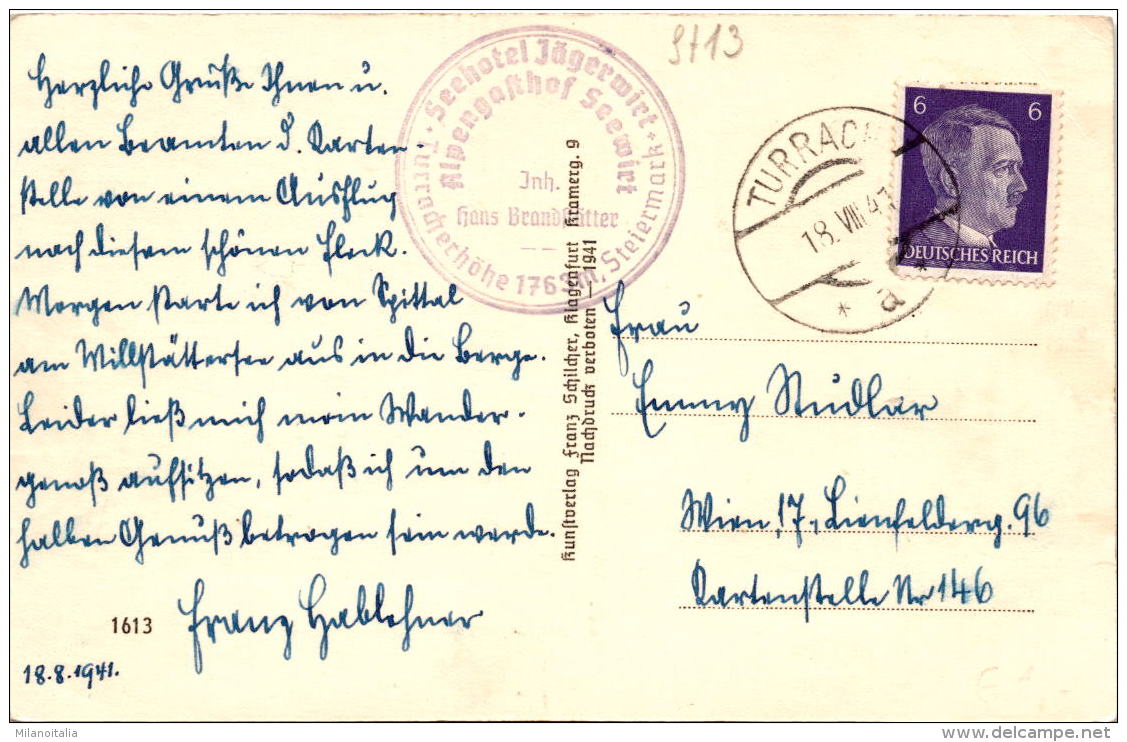 Herzliche Grüße Ihnen u.
allen Beamten d. Karten-
stelle von einem Ausflug
nach diesem schönen Fleck.
Morgen starte ich von Spittal
am Millstättersee aus in die Berge.
Leider ließ mich mein Wander-
genoß aufsitzen, sodaß ich um den
halben Genuß betrogen sein werde.
Franz Hablehner
1613
18.8.1941.
Seehotel Jägerwirt
Alpengasthof Seewirt
Inh.
Hans Brandstätter
Turracherhöhe 1763 m, Steiermark
Kunstverlag Franz Schilcher, Klagenfurt Kramerg. 9
Nachdruck verboten — 1941
9713
TURRACH
18. VIII. 41
* a *
6 6
DEUTSCHES REICH
Frau
Emmy Studlar
Wien, 17., Lienfelderg. 96
Kartenstelle Nr 146
Milanoitalia
www.delcampe.net